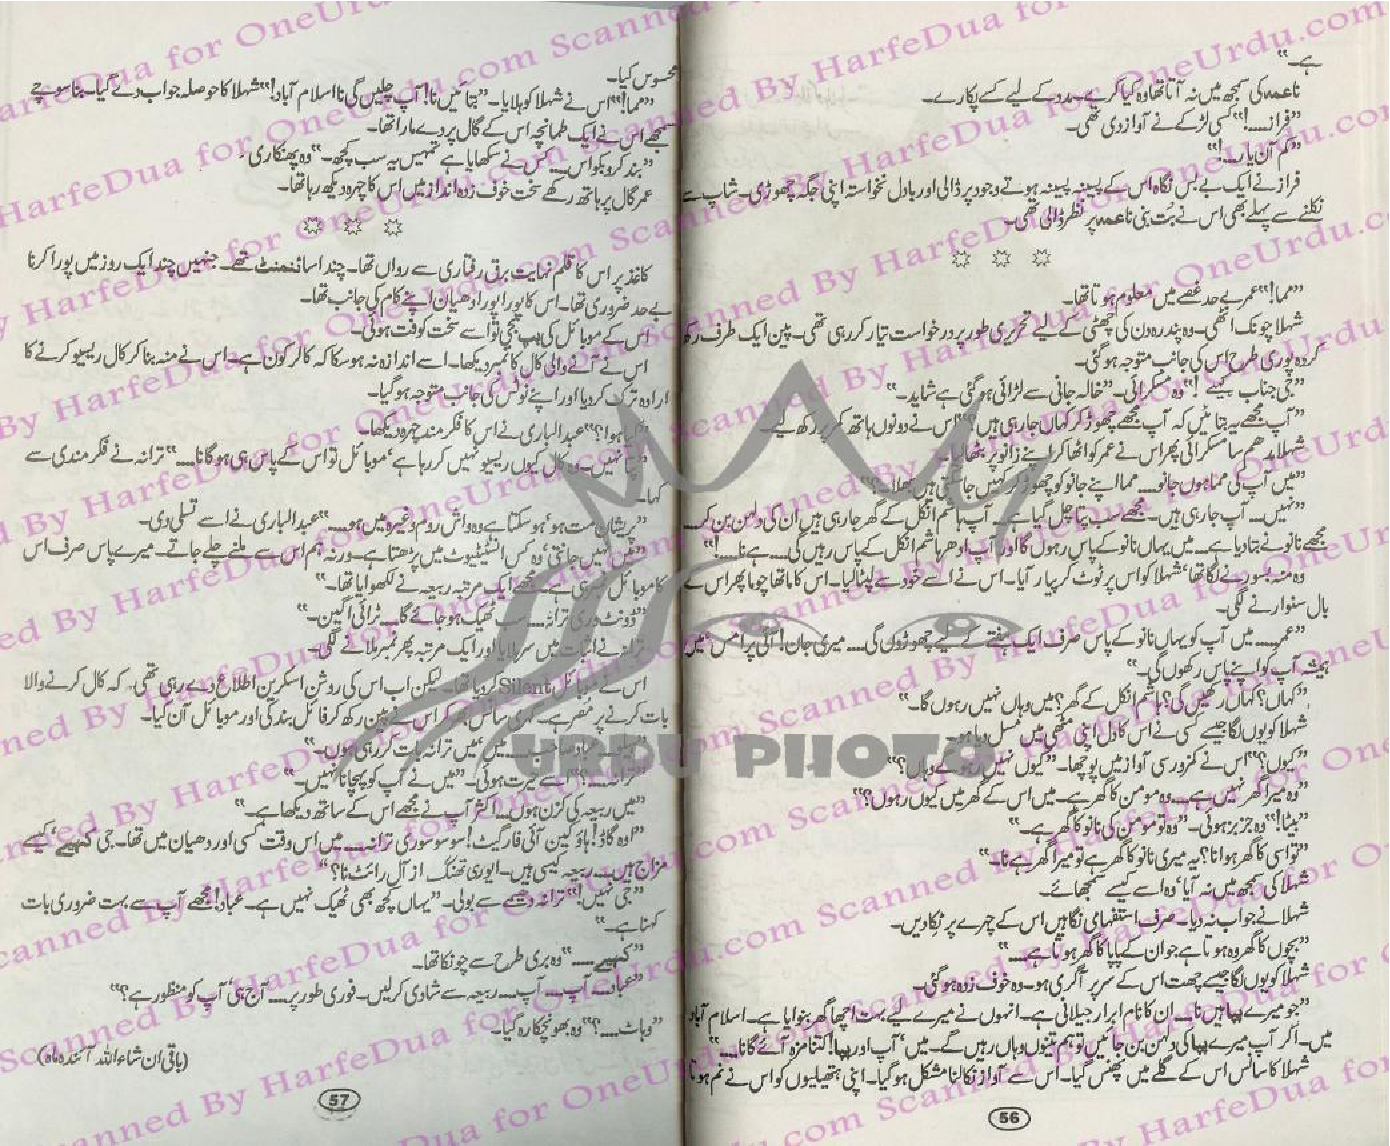 ہے۔“
ناعمہ کی سمجھ میں نہ آتا تھا وہ کیا کرے۔ مدد کے لیے کسے پکارے۔
”فراز.....!“ کسی لڑکے نے آواز دی تھی۔
”کم آن یار....!“
فراز نے ایک بے بس نگاہ اس کے پسینہ پسینہ ہوتے وجود پر ڈالی اور بادل نخواستہ اپنی جگہ چھوڑی۔ شاپ سے
نکلنے سے پہلے بھی اس نے بُت بنی ناعمہ پر نظر ڈالی تھی۔
”مما!“ عمر بے حد غصے میں معلوم ہوتا تھا۔
شہلا چونک اٹھی۔ وہ پندرہ دن کی چھٹی کے لیے تحریری طور پر درخواست تیار کر رہی تھی۔ پین ایک طرف رکھ
کر وہ پوری طرح اس کی جانب متوجہ ہو گئی۔
”جی جناب کہیے!“ وہ مسکرائی۔ ”خالہ جانی سے لڑائی ہو گئی ہے شاید۔“
”آپ مجھے یہ بتائیں کہ آپ مجھے چھوڑ کر کہاں جا رہی ہیں؟“ اس نے دونوں ہاتھ کمر پر رکھ لیے۔
شہلا مدھم سا مسکرائی پھر اس نے عمر کو اٹھا کر اپنے زانو پر بٹھا لیا۔
”میں آپ کی مما ہوں جانو.... مما اپنے جانو کو چھوڑ کر کہیں جا سکتی ہیں بھلا....؟“
”نہیں.... آپ جا رہی ہیں۔ مجھے سب پتا چل گیا ہے۔ آپ ہاشم انکل کے گھر جا رہی ہیں ان کی دلہن بن کر....
مجھے نانو نے بتا دیا ہے.... میں یہاں نانو کے پاس رہوں گا اور آپ ادھر ہاشم انکل کے پاس رہیں گی.... ہے نا....!“
وہ منہ بسورنے لگا تھا‘ شہلا کو اس پر ٹوٹ کر پیار آیا۔ اس نے اسے خود سے لپٹا لیا۔ اس کا ماتھا چوما پھر اس کے
بال سنوارنے لگی۔
”عمر..... میں آپ کو یہاں نانو کے پاس صرف ایک ہفتے کے لیے چھوڑوں گی.... میری جان! آئی پرامس‘ میں
ہمیشہ آپ کو اپنے پاس رکھوں گی۔“
”کہاں؟ کہاں رکھیں گی؟ ہاشم انکل کے گھر؟ میں وہاں نہیں رہوں گا۔“
شہلا کو یوں لگا جیسے کسی نے اس کا دل اپنی مٹھی میں مسل دیا ہو۔
”کیوں؟“ اس نے کمزور سی آواز میں پوچھا۔ ”کیوں نہیں رہو گے وہاں؟“
”وہ میرا گھر نہیں ہے.... وہ مومن کا گھر ہے۔ میں اس کے گھر میں کیوں رہوں؟“
”بیٹا!“ وہ جزبز ہوئی۔ ”وہ تو مومن کی نانو کا گھر ہے۔“
”تو اسی کا گھر ہوا نا؟ یہ میری نانو کا گھر ہے تو میرا گھر ہے نا۔“
شہلا کی سمجھ میں نہ آیا‘ وہ اسے کیسے سمجھائے۔
شہلا نے جواب نہ دیا۔ صرف استفہامی نگاہیں اس کے چہرے پر ٹکا دیں۔
”بچوں کا گھر وہ ہوتا ہے جو ان کے پاپا کا گھر ہوتا ہے....“
شہلا کو یوں لگا جیسے چھت اس کے سر پر آ گری ہو۔ وہ خوف زدہ ہو گئی۔
”جو میرے پاپا ہیں نا.... ان کا نام ابرار جیلانی ہے۔ انہوں نے میرے لیے بہت اچھا گھر بنوایا ہے۔ اسلام آباد
میں۔ اگر آپ میرے پاپا کی دلہن بن جائیں تو ہم تینوں وہاں رہیں گے۔ میں‘ آپ اور پاپا! کتنا مزہ آئے گا نا....“
شہلا کا سانس اس کے گلے میں پھنس گیا۔ اس سے آواز نکالنا مشکل ہو گیا۔ اپنی ہتھیلیوں کو اس نے نم ہوتا
56
محسوس کیا۔
”مما!“ اس نے شہلا کو ہلایا۔ ”بتائیں نا! آپ چلیں گی نا اسلام آباد!“ شہلا کا حوصلہ جواب دے گیا۔ بنا سوچے
سمجھے اس نے ایک طمانچہ اس کے گال پر دے مارا تھا۔
”بند کرو بکواس.... کس نے سکھایا ہے تمہیں یہ سب کچھ۔“ وہ پھنکاری۔
عمر گال پر ہاتھ رکھے سخت خوف زدہ انداز میں اس کا چہرہ دیکھ رہا تھا۔
کاغذ پر اس کا قلم نہایت برق رفتاری سے رواں تھا۔ چند اسائنمنٹ تھے۔ جنہیں چند ایک روز میں پورا کرنا
بے حد ضروری تھا۔ اس کا پورا پورا دھیان اپنے کام کی جانب تھا۔
اس کے موبائل کی بپ بجی تو اسے سخت کوفت ہوئی۔
اس نے آنے والی کال کا نمبر دیکھا۔ اسے اندازہ نہ ہو سکا کہ کالر کون ہے۔ اس نے منہ بنا کر کال ریسیو کرنے کا
ارادہ ترک کر دیا اور اپنے نوٹس کی جانب متوجہ ہو گیا۔
”کیا ہوا؟“ عبدالباری نے اس کا فکر مند چہرہ دیکھا۔
”پتا نہیں۔ وہ کال کیوں ریسیو نہیں کر رہا ہے‘ موبائل تو اس کے پاس ہی ہو گا نا....“ ترانہ نے فکر مندی سے
کہا۔
”پریشان مت ہو‘ ہو سکتا ہے وہ واش روم وغیرہ میں ہو....“ عبدالباری نے اسے تسلی دی۔
”میں نہیں جانتی‘ وہ کس انسٹیٹیوٹ میں پڑھتا ہے۔ ورنہ ہم اس سے ملنے چلے جاتے۔ میرے پاس صرف اس
کا موبائل نمبر ہی ہے مجھے ایک مرتبہ ربیعہ نے لکھوایا تھا۔“
”ڈونٹ وری ترانہ.... سب ٹھیک ہو جائے گا.... ٹرائی اگین۔“
ترانہ نے اثبات میں سر ہلایا اور ایک مرتبہ پھر نمبر ملانے لگی۔
اس نے موبائل Silent کر دیا تھا۔ لیکن اب اس کی روشن اسکرین اطلاع دے رہی تھی۔ کہ کال کرنے والا
بات کرنے پر مصر ہے۔ گہری سانس بھر کر اس نے پین رکھ کر فائل بند کی اور موبائل آن کیا۔
”ہیلو.... عباد صاحب.... میں‘ میں ترانہ بات کر رہی ہوں۔“
”ترانہ....؟“ اسے حیرت ہوئی۔ ”میں نے آپ کو پہچانا نہیں۔“
”میں ربیعہ کی کزن ہوں.... اکثر آپ نے مجھے اس کے ساتھ دیکھا ہے۔“
”اوہ گاڈ! ہاؤ کین آئی فارگیٹ! سو سو سوری ترانہ.... میں اس وقت کسی اور دھیان میں تھا۔ جی کہیے‘ کیسے
مزاج ہیں.... ربیعہ کیسی ہیں۔ ایوری تھنگ از آل رائٹ نا؟“
”جی نہیں!“ ترانہ دھیمے سے بولی۔ ”یہاں کچھ بھی ٹھیک نہیں ہے۔ عباد! مجھے آپ سے بہت ضروری بات
کہنا ہے۔“
”کہیے....“ وہ بری طرح سے چونکا تھا۔
”عباد.... آپ.... آپ.... ربیعہ سے شادی کر لیں۔ فوری طور پر.... آج ہی‘ آپ کو منظور ہے؟“
”وہاٹ....؟“ وہ بھونچکا رہ گیا۔
(باقی ان شاء اللہ آئندہ ماہ)
57
URDU PHOTO
Scanned By HarfeDua for OneUrdu.com